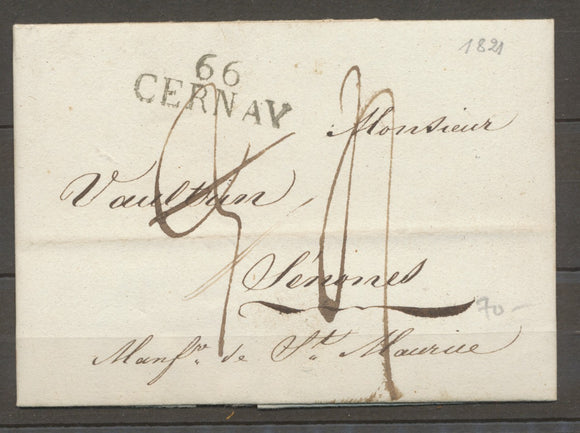 1821
66
CERNAY
Monsieur
Vaultrin
Sénones
Manfre. de St. Maurice
70-